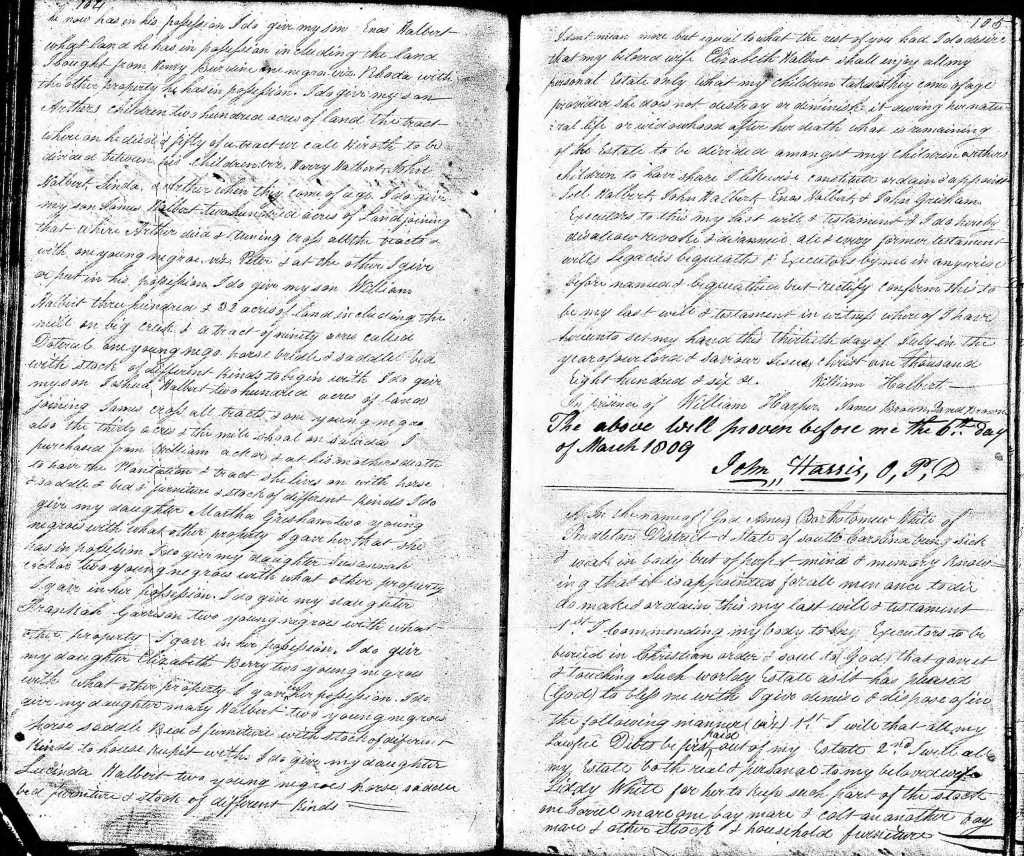 104
he now has in his possession I do give my son Enos Halbert
what land he has in possession including the land
I bought from Henry Burdine one negro viz Rhoda with
the other property he has in possession. I do give my son
Arthers children two hundred acres of land the tract
where on he died & fifty of a tract we call to be
divided between his children viz. Harry Halbert, John
Halbert, Linda, & Arther when they come of age. I do give
my son James Halbert two hundred acres of Land joining
that where Arther died & runing cross all the tracts &
with one young negroe viz. Peter & at the other I give
or put in his possession. I do give my son William
Halbert three hundred & 32 acres of land including the
mill on big creek & a tract of ninety acres called
one young nego. horse bridle & saddle bed
with stock of different kinds to begin with I do give
my son Joshua Halbert two hundred acres of land
joining James cross all tracts & one young negro
also the thirty acres & the mile shoal on saluda I
purchased from William acker & at his mothers death
to have the Plantation & tract she lives on with horse
& saddle & bed & furniture & stock of different kinds I do
give my daughter Martha Grisham two young
negroes with what other property I gave her that she
has in possession I do give my daughter Susannah
two young negroes with what other property
I gave in her possession. I do give my daughter
Garrison two young negroes with what
other property I gave in her possession, I do give
my daughter Elizabeth Berry two young negroes
with what other property I gave her possession. I do
give my daughter mary Halbert two young negroes
horse saddle Bed & furniture with stock of different
kinds to house keep it with. I do give my daughter
Lucinda Halbert two young negroes horse saddle
bed furniture & stock of different kinds
105
I dont mean more but equal to what the rest of you had I do desire
that my beloved wife Elizabeth Halbert shall enjoy all my
personal Estate only what my children takes as they come of age
provided she does not destroy or diminish it during her natu-
ral life or widowhood after her death what is remaining
of the Estate to be divided amongst my children Arthers
children to have share I likewise constitute ordain & appoint
Joel Halbert, John Halbert, Enos Halbert, & John Grisham
Executors to this my last will & testament & I do hereby
disallow revoke & disannul all & every former testament
wills Legacies bequeaths & Executors by me in any wise
before named & bequeathed but rectify confirm this to
be my last will & testament in witness where of I have
hereunto set my hand this thirtieth day of July in the
year of our Lord & saviour Jesus christ one thousand
Eight hundred & six &c. William Halbert
In presence of William Harper James Brown, Brown
The above will proven before me the 6th. day
of March 1809
John Harris, O, P, D
In the name of God Amen Bartholomew White of
Pendleton District & State of South Carolina being sick
& weak in body but of perfect mind & memory know-
ing that it is appointed for all men once to die
do make & ordain this my last will & testament
1st I commending my body to my Executors to be
buried in Christian order & soul to (God) that gave it
& touching such worldy Estate as it has pleased
(God) to bless me with I give demise & dispose of in
the following manner (viz) 1st I will that all my
Lawful Debts be first paid out of my Estate 2nd I will all
my Estate both real & personal to my beloved wife
Liddy White for her to keep such part of the stock
one sorrel mare one bay mare & colt an another bay
mare & other stock & household furniture